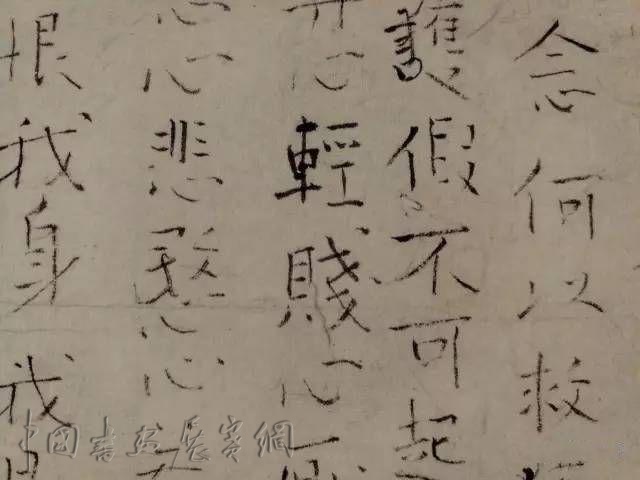 念何以救
護假不可起
心輕賤心
心悲愍心
恨我身我
中國書畫展賽網